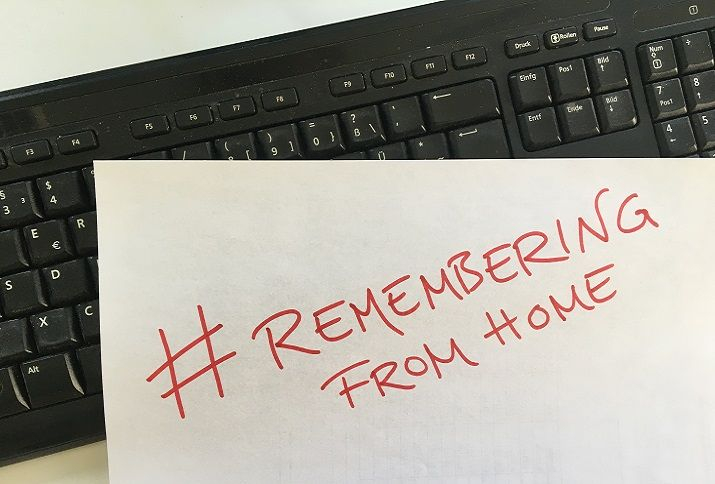 Druck
Rollen
Pause
F3
F4
F5
F6
F7
F8
F9
F10
F11
F12
Einfg
Pos1
Bild
Num
÷
Entf
Ende
Bild
7
Pos1
8
4
5
§
3
³
$
4
8
[
9
)
]
=
0
}
?
ß
\
E
€
R
Ü
S
D
X
C
Alt
# REMEMBERING
FROM HOME